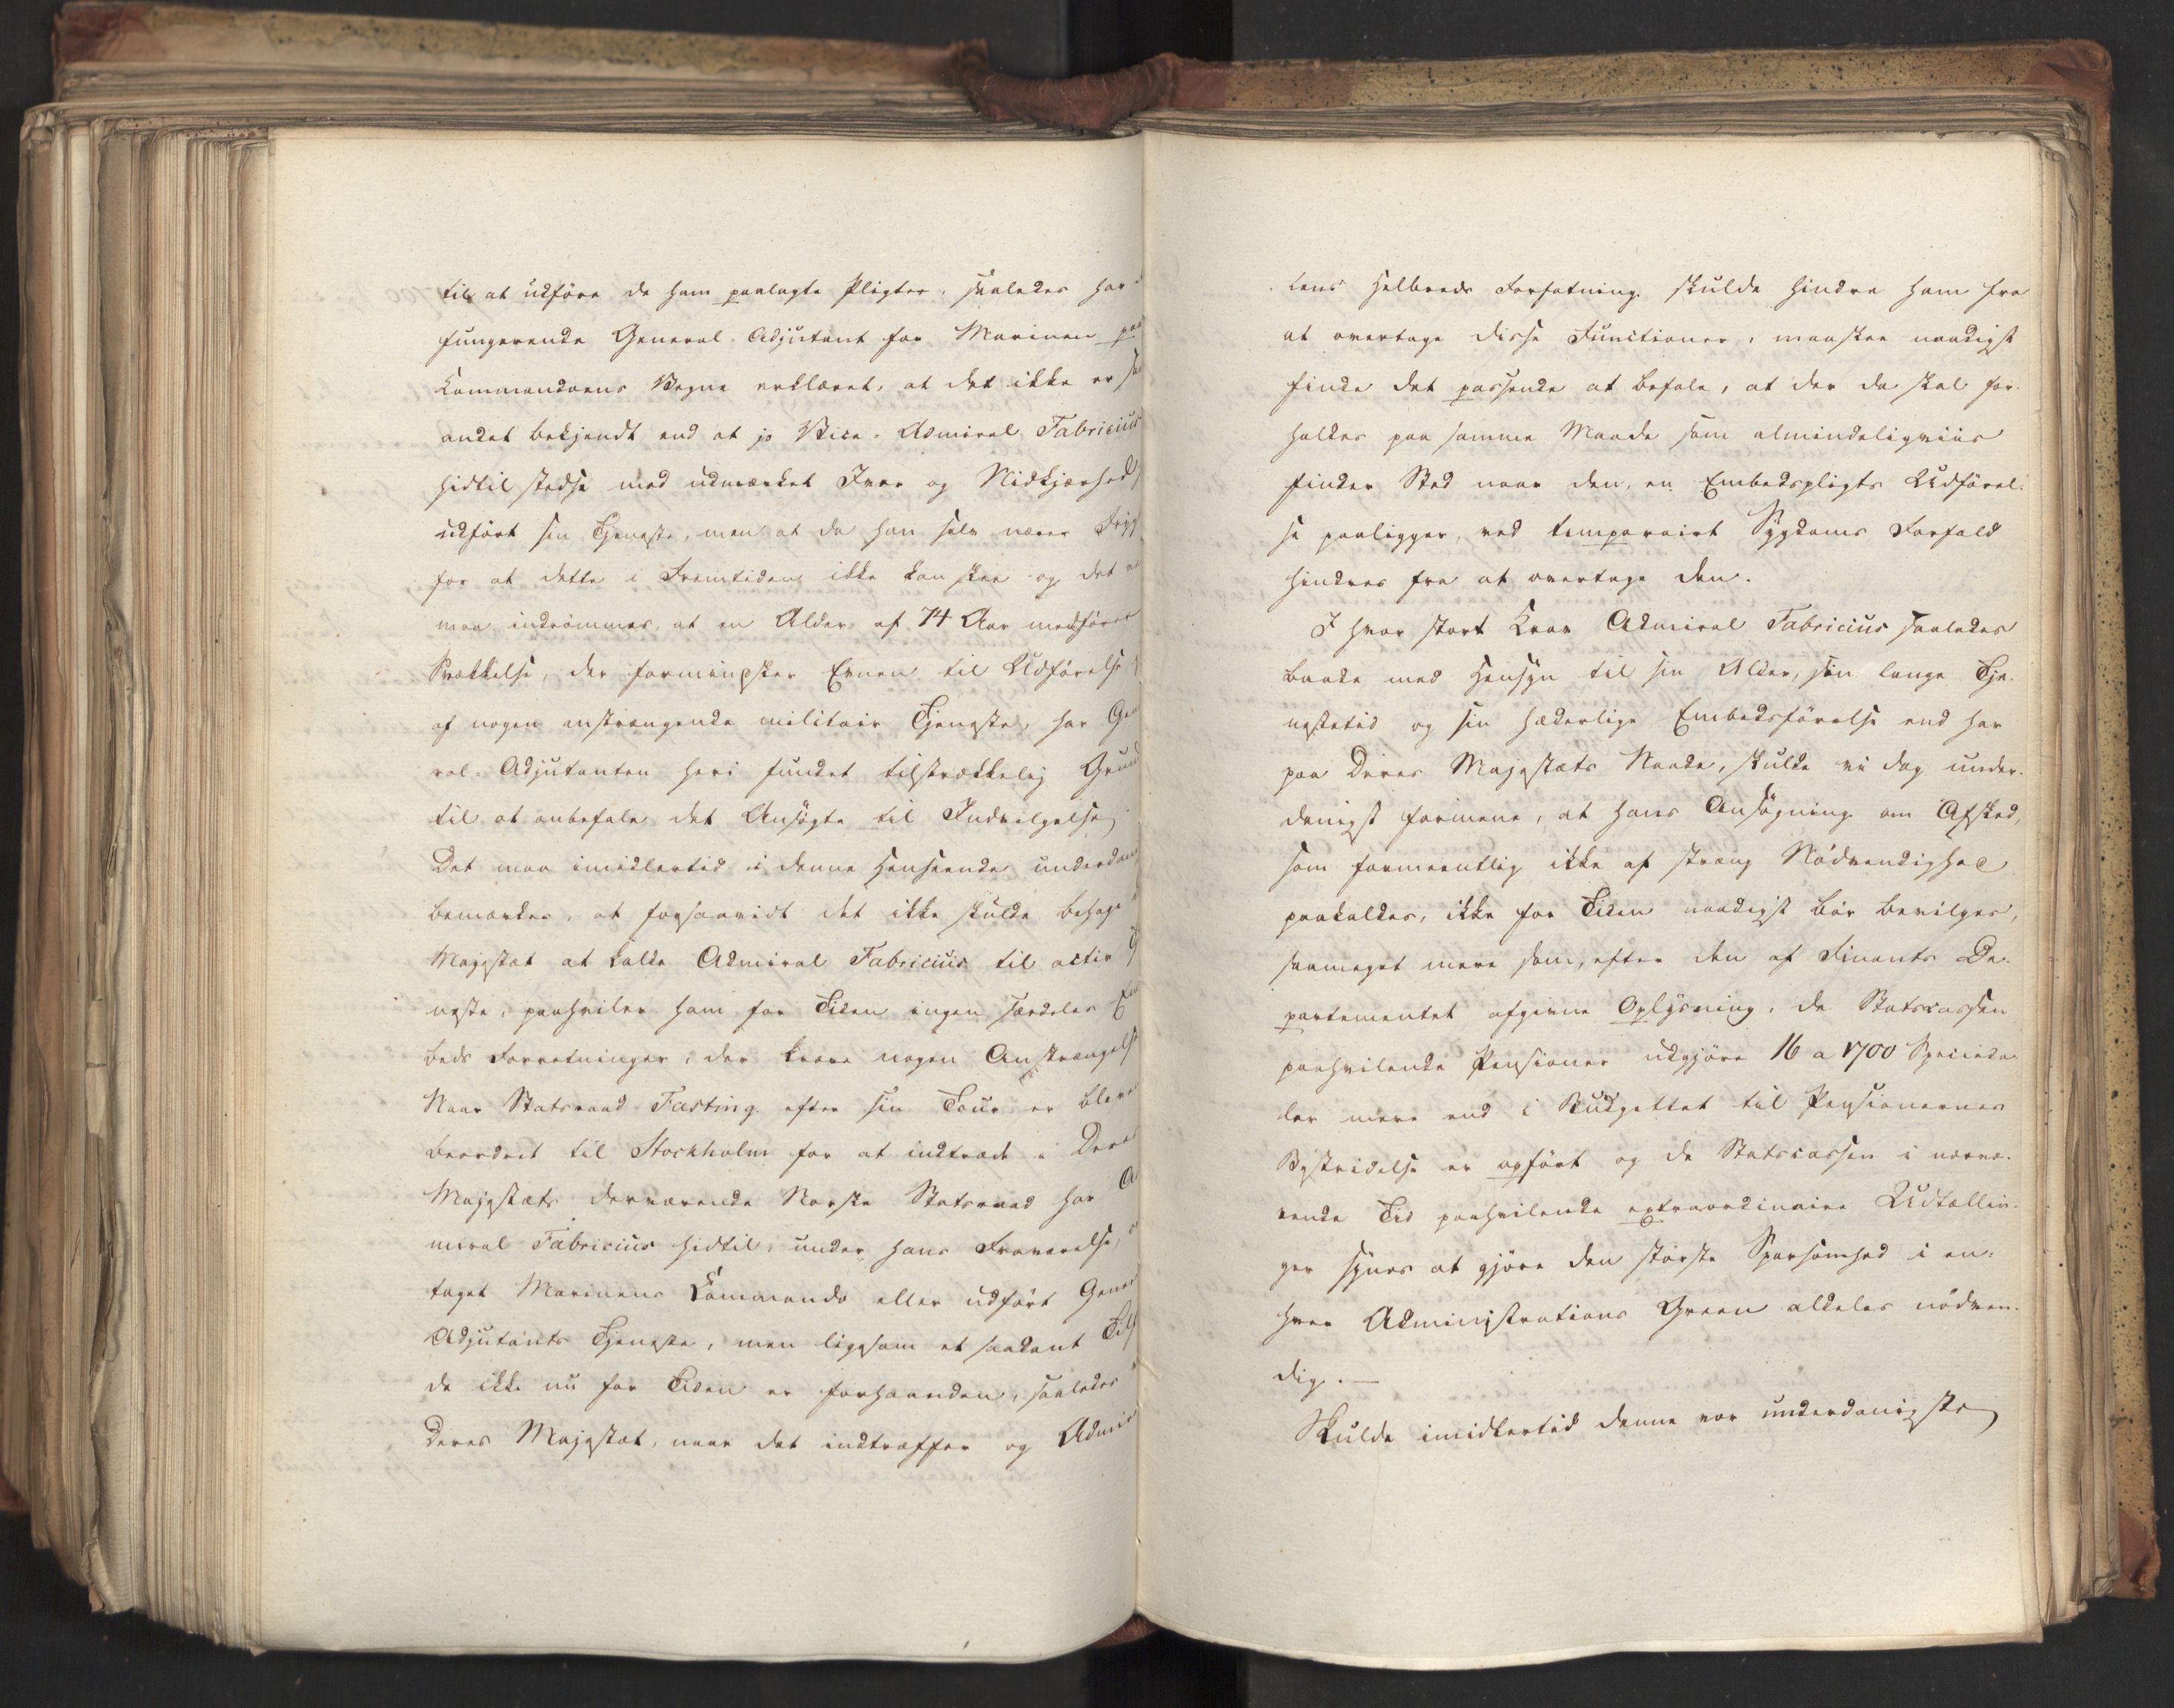 til at udföre de ham paalagte Pligter, saaledes har
fungerende General-Adjutant for Marinen paa
Commandoens Vegne erklæret, at det ikke er
andet bekjendt end at jo Vice-Admiral Fabricius
hidtil stedse med udmærket Iver og Nidkjærhed
udført sin Tjeneste, men at da han selv nærer Frygt
for at dette i Fremtiden ikke kan skee og det
maa indrömmes, at en Alder af 74 Aar medfører
Svækkelse, der formindsker Evnen til Udförelse
af nogen anstrængende militair Tjeneste, har Gene
ral-Adjutanten heri fundet tilstrækkelig Grund
til at anbefale det Ansögte til Indvilgelse
Det maa imidlertid i denne Henseende underdan
bemærkes, at forsaavidt det ikke skulde behage
Majestæt at kalde Admiral Fabricius til activ Tj
neste, paahviler ham for Tiden ingen særdeles Em
beds Forretninger, der kræve nogen Anstrængelse
Naar Statsraad Fasting efter sin Tour er bleven
beordret til Stockholm for at indtræde i Deres
Majestæts derværende Norske Statsraad har Ad
miral Fabricius hidtil, under hans Fraværelse,
taget Marinens Commando eller udfört General
Adjutants Tjeneste, men ligesom et saadant Tilf
de ikke nu for Tiden er forhaanden, saaledes
Deres Majestæt, naar det indtræffer og Admira
lens Helbreds Forfatning skulde hindre ham fra
at overtage disse Functioner, maaskee naadigst
finde det passende at befale, at der da skal for-
holdes paa samme Maade som almindeligviis
finder Sted naar den, en Embedspligts Udförel-
se paaligger, ved temporairt Sygdoms Forfald
hindres fra at overtage den.
I hvor stort Krav Admiral Fabricius saaledes
baade med Hensyn til sin Alder, sin lange Tje-
nestetid og sin hæderlige Embedsförelse end har
paa Deres Majestæts Naade, skulde vi dog under-
danigst formene, at hans Ansögning om Afsked,
som formeentlig ikke af streng Nödvendighed
paakaldes, ikke for Tiden naadigst bör bevilges,
saameget mere som, efter den af Finants De-
partementet afgivne Oplysning, de Statscassen
paahvilende Pensioner udgjöre 16 a 1700 Specieda-
ler mere end i Budgettet til Pensionernes
Bestridelse er opfört og de Statscassen i nærvæ-
rende Tid paahvilende extraordinaire Udtællin-
ger synes at gjöre den störste Sparsomhed i en-
hver Administrations Green aldeles nödven-
dig. —
Skulde imidlertid denne vor underdanigste